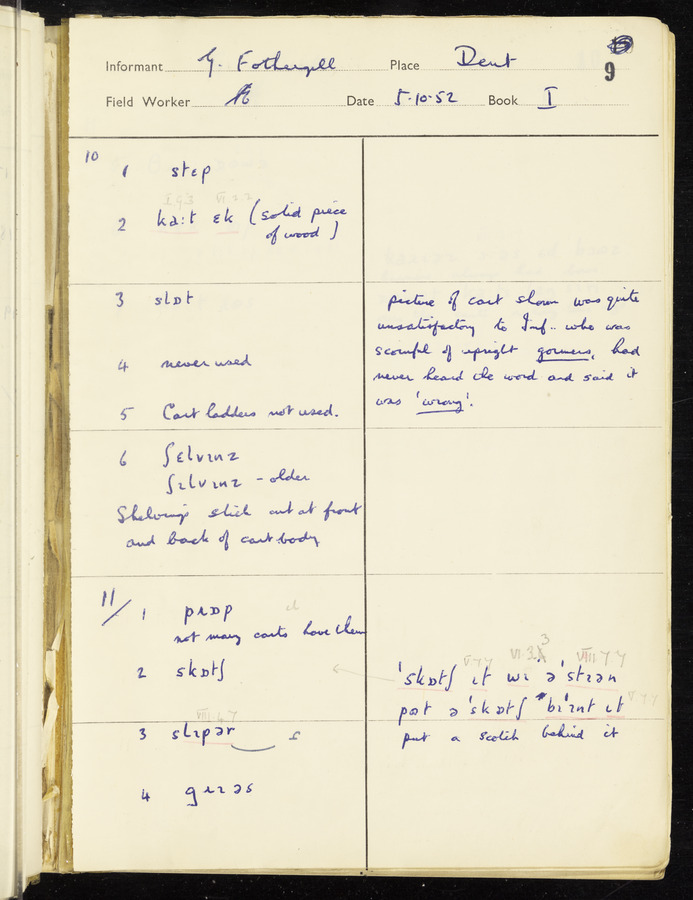 9
Informant G. Fothergill Place Dent
Field Worker Date 5·10·52 Book I
10
1 stɛp
2 ka:t ɛk (solid piece
of wood)
3 slɒt
4 never used
5 Cart ladders not used.
6 ʃɛlvɪnz
ʃɪlvɪnz - older
Shelvings stick out at front
and back of cart-body
picture of cart shown was quite
unsatisfactory to Inf.. who was
scornful of upright gormers, had
never heard the word and said it
was 'wrong'.
11/ 1 pɹɒp
not many carts have them
2 skɒtʃ
3 slɪpəɾ
4 gɪɪəs
'skɒtʃ ɪt wɪ ə 'stɪən
pət ə 'skɒtʃ bɪ'ɪnt ɪt
put a scotch behind it